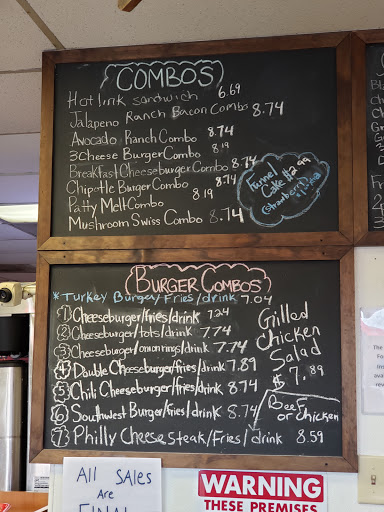 COMBOS
Hot link sandwich 6.69
Jalapeno Ranch Bacon Combo 8.74
Avocado Ranch Combo 8.74
3 Cheese Burger Combo 8.19
Breakfast Cheeseburger Combo 8.74
Chipotle Burger Combo 8.74
Patty Melt Combo 8.19
Mushroom Swiss Combo 8.74
Funnel
Cake $2.99
BURGER COMBOS
*Turkey Burger/Fries/drink 7.04
1 Cheeseburger/fries/drink 7.24
2 Cheeseburger/tots/drink 7.74
3 Cheeseburger/onion rings/drink 7.74
4 Double Cheeseburger/fries/drink 7.89
5 Chili Cheeseburger/fries/drink 8.74
6 Southwest Burger/fries/drink 8.74
7 Philly Cheese Steak/Fries/drink 8.59
Gilled
Chicken
Salad
$7.89
Beef
or Chicken
All SAles
Are
FINAL
WARNING
THESE PREMISES